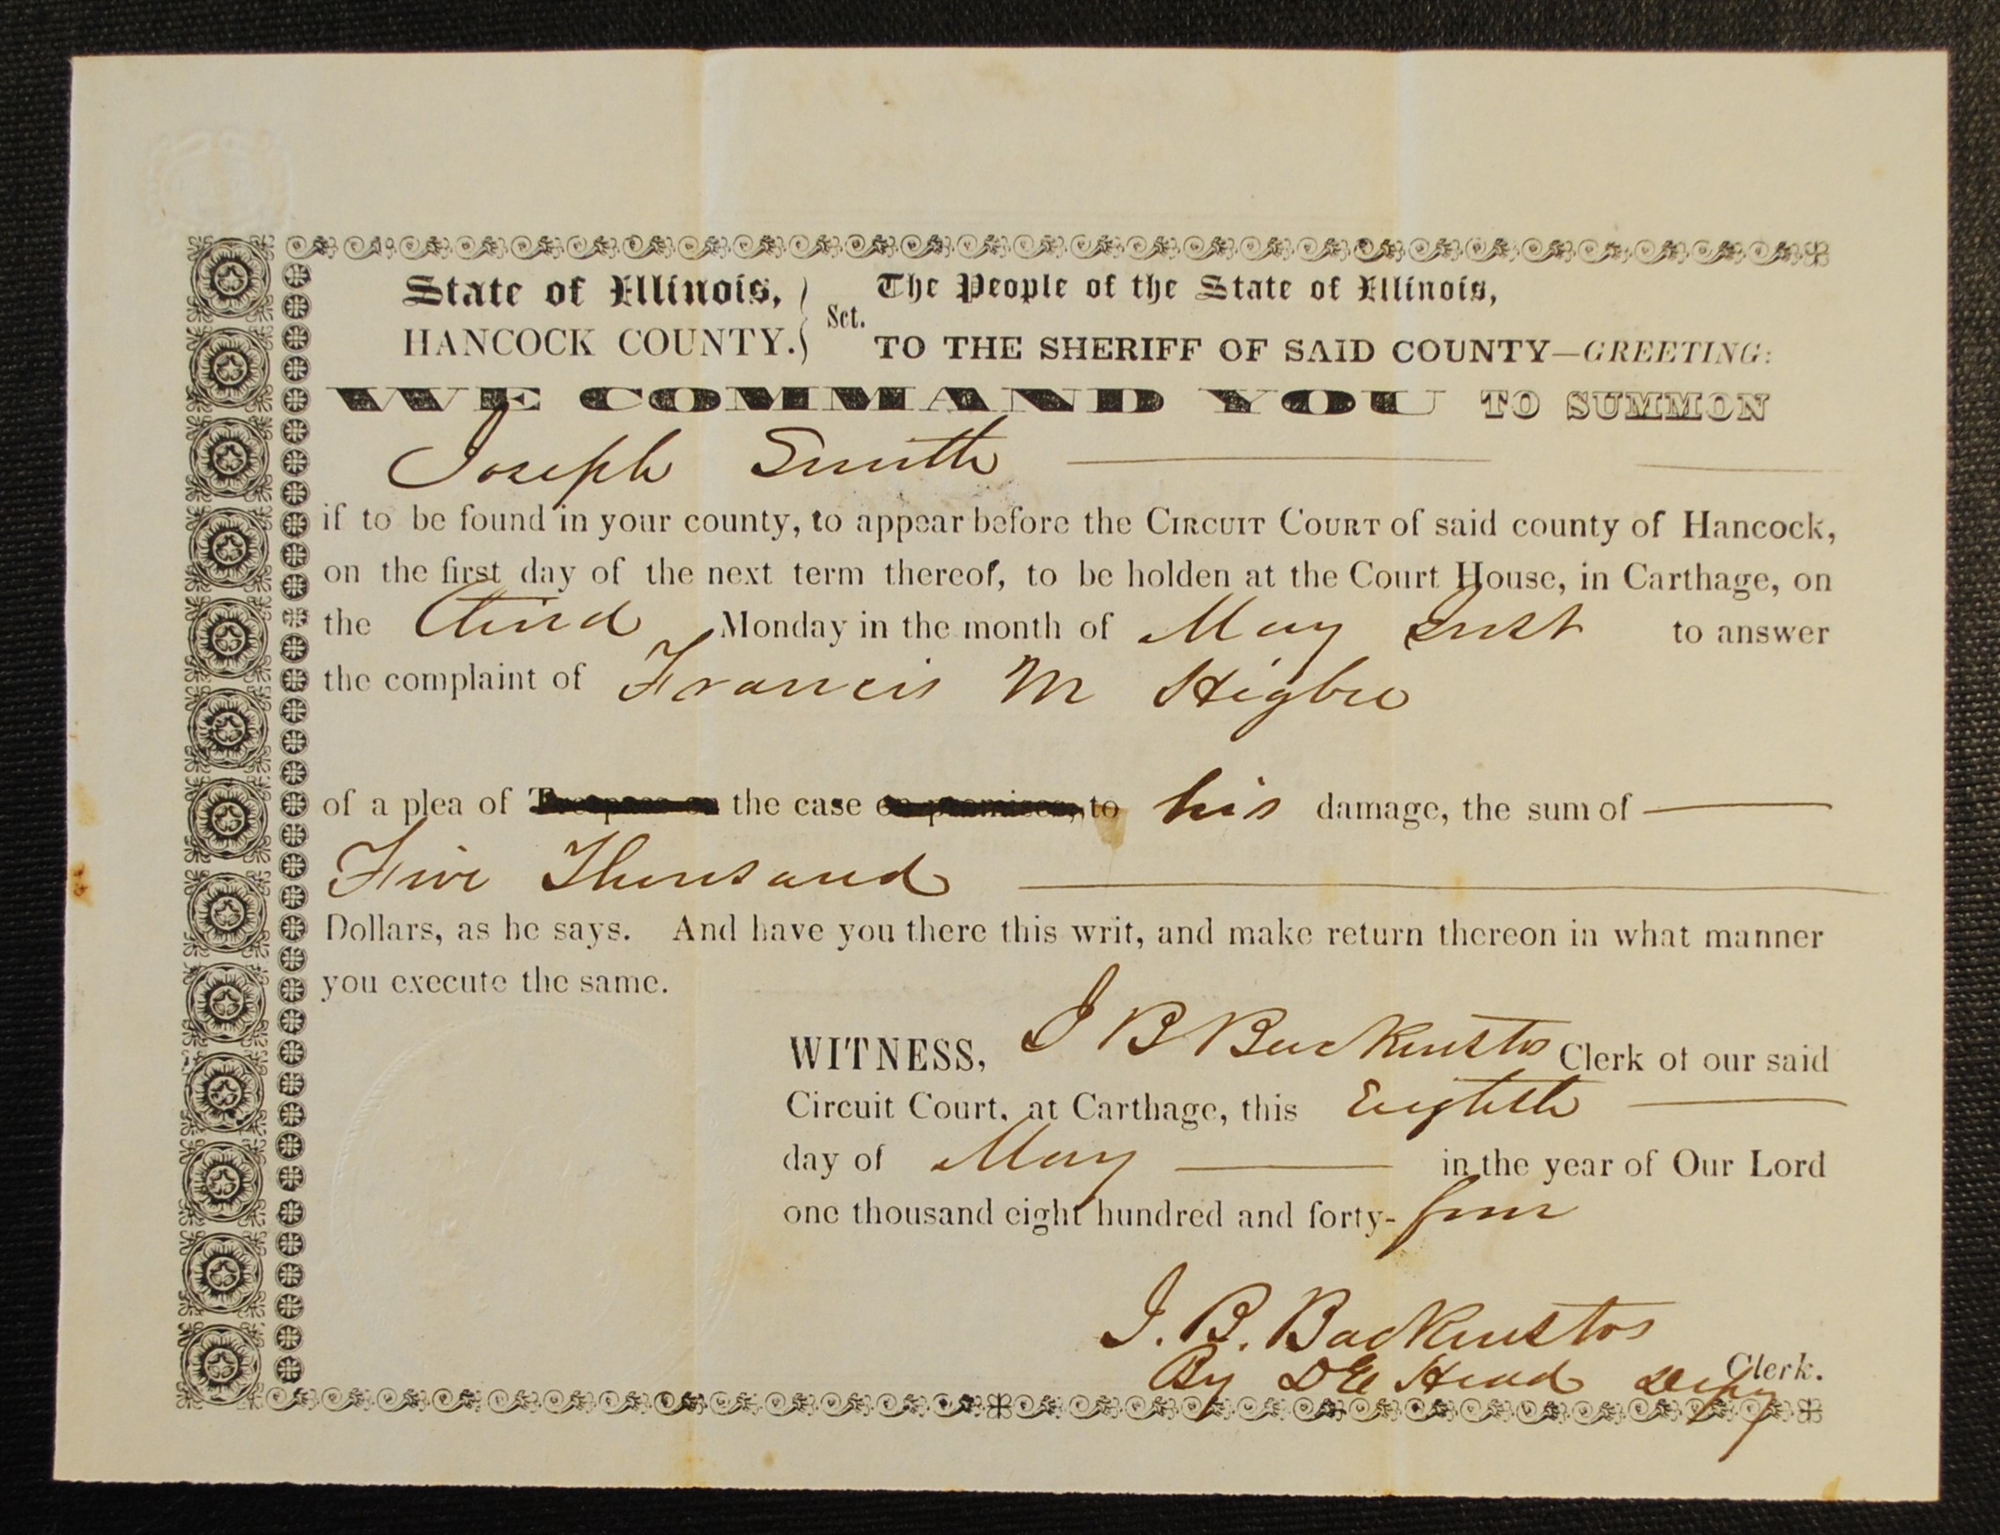 State of Illinois, } Sct. The People of the State of Illinois,
HANCOCK COUNTY. TO THE SHERIFF OF SAID COUNTY—GREETING:
WE COMMAND YOU TO SUMMON
Joseph Smith
if to be found in your county, to appear before the CIRCUIT COURT of said county of Hancock,
on the first day of the next term thereof, to be holden at the Court House, in Carthage, on
the third Monday in the month of May Inst to answer
the complaint of Francis M Higbee
of a plea of Trespass on the case on promises, to his damage, the sum of
Five Thousand
Dollars, as he says. And have you there this writ, and make return thereon in what manner
you execute the same.
WITNESS, J B Backenstos Clerk of our said
Circuit Court, at Carthage, this Eighth
day of May in the year of Our Lord
one thousand eight hundred and forty-four
J. B. Backenstos
Clerk.
By D E Head Depy